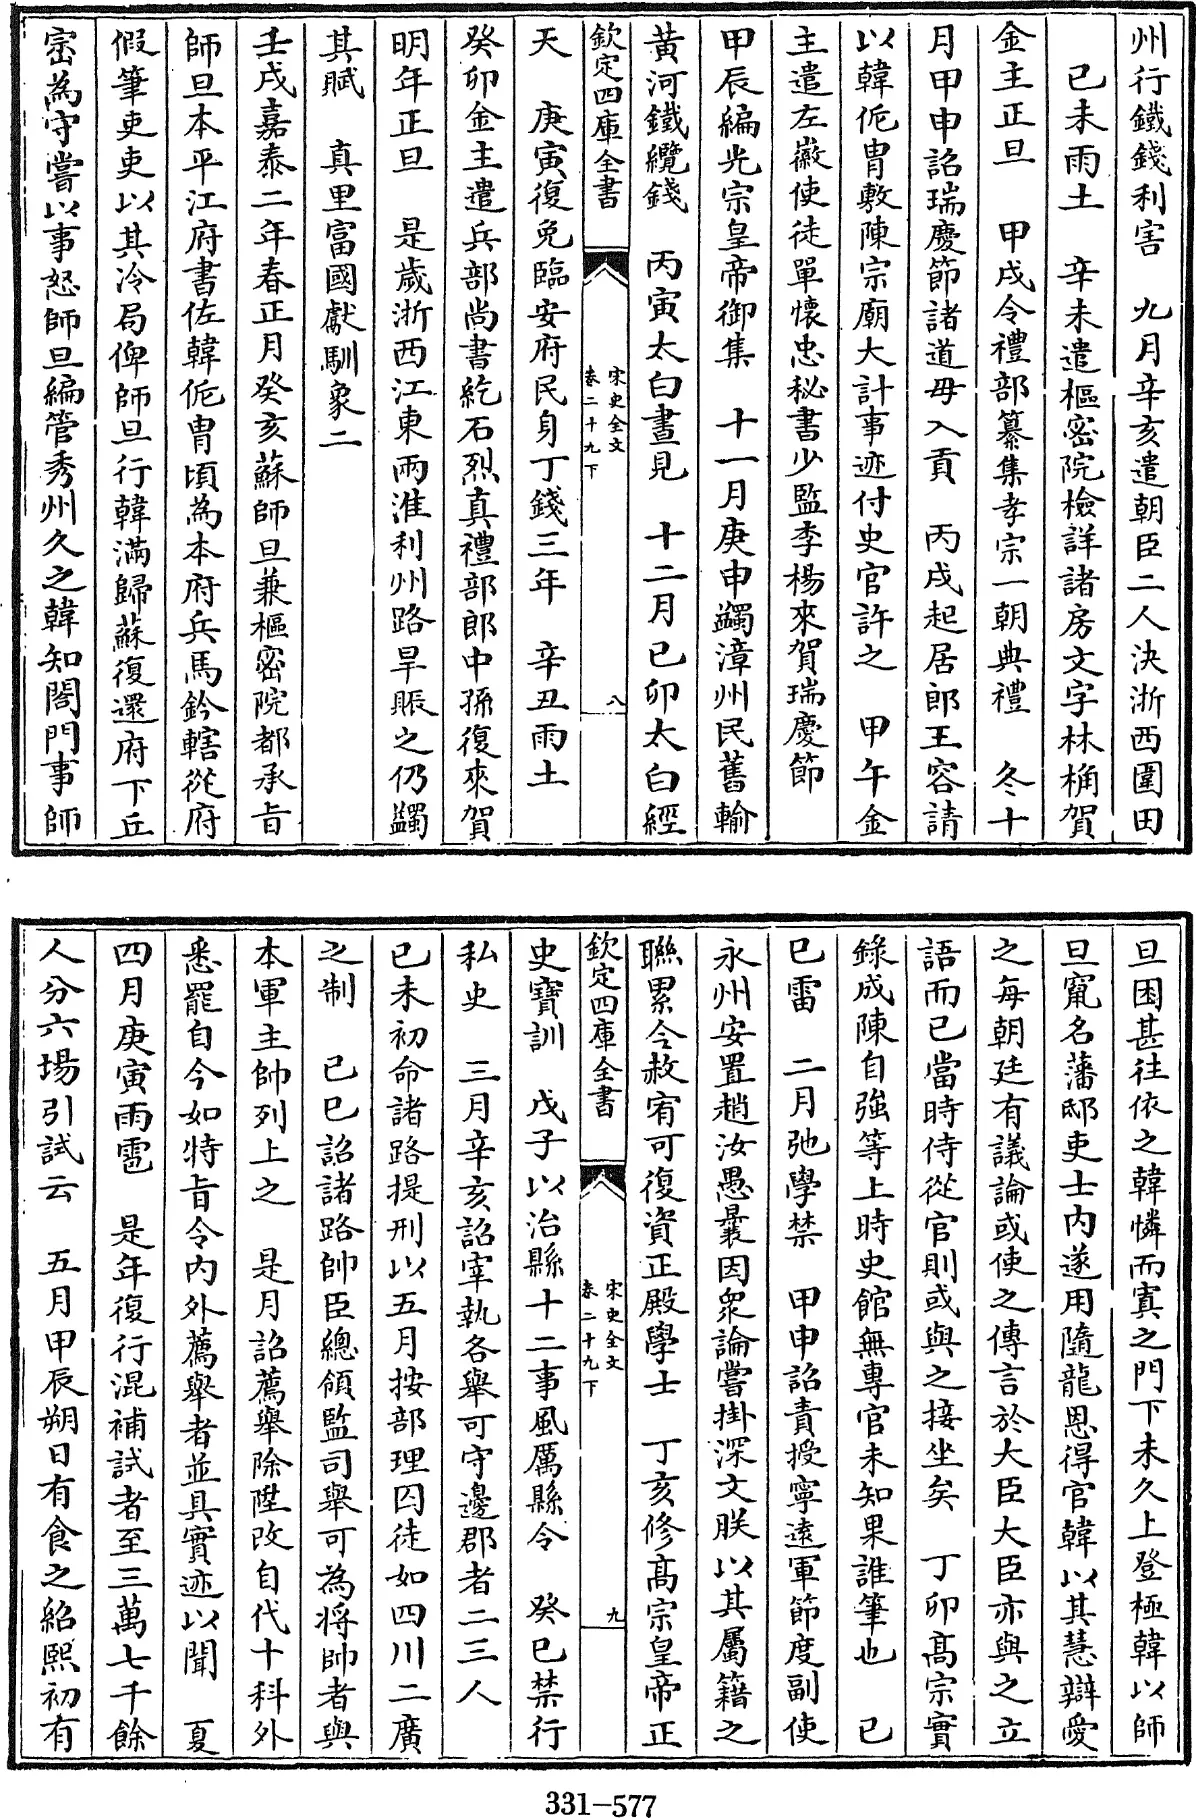 州行鐵錢利害　九月辛亥遣朝臣二人決浙西圍田
已未雨土　辛未遣樞密院檢詳諸房文字林桷賀
金主正旦　甲戌令禮部纂集孝宗一朝典禮　冬十
月甲申詔瑞慶節諸道毋入貢　丙戌起居郎王容請
以韓侂胄敷陳宗廟大計事迹付史官許之　甲午金
主遣左徽使徒單懷忠秘書少監李楊來賀瑞慶節
甲辰編光宗皇帝御集　十一月庚申蠲漳州民舊輸
黄河鐵纜錢　丙寅太白晝見　十二月已卯太白經
欽定四庫全書
宋史全文
卷二十九下
八
天　庚寅復免臨安府民身丁錢三年　辛丑雨土
癸卯金主遣兵部尚書紇石烈真禮部郎中孫復來賀
明年正旦　是歲浙西江東兩淮利州路旱賑之仍蠲
其賦　真里富國獻馴象二
壬戌嘉泰二年春正月癸亥蘇師旦兼樞密院都承旨
師旦本平江府書佐韓侂胄頃為本府兵馬鈐轄從府
假筆吏吏以其冷局俾師旦行韓滿歸蘇復還府下丘
密為守嘗以事怒師旦編管秀州久之韓知閤門事師
旦困甚往依之韓憐而寘之門下未久上登極韓以師
旦竄名藩邸吏士内遂用隨龍恩得官韓以其慧辯愛
之每朝廷有議論或使之傳言於大臣大臣亦與之立
語而已當時侍從官則或與之接坐矣　丁卯髙宗實
錄成陳自強等上時史館無專官未知果誰筆也　已
巳雷　二月弛學禁　甲申詔責授寧遠軍節度副使
永州安置趙汝愚曩因衆論嘗掛深文朕以其屬籍之
聯累今赦宥可復資正殿學士　丁亥修髙宗皇帝正
欽定四庫全書
宋史全文
卷二十九下
九
史寶訓　戊子以治縣十二事風厲縣令　癸巳禁行
私史　三月辛亥詔宰執各舉可守邊郡者二三人
已未初命諸路提刑以五月按部理囚徒如四川二廣
之制　已巳詔諸路帥臣總領監司舉可為將帥者與
本軍主帥列上之　是月詔薦舉除陞改自代十科外
悉罷自今如特旨令内外薦舉者並具實迹以聞　夏
四月庚寅雨雹　是年復行混補試者至三萬七千餘
人分六場引試云　五月甲辰朔日有食之紹熙初有
331-577